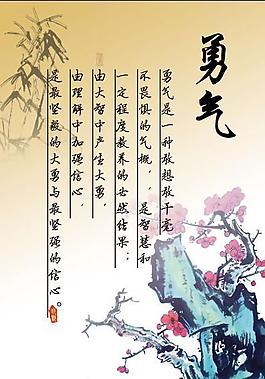 勇气
勇气是一种敢想敢干毫
不畏惧的气概，是智慧和
一定程度教养的必然结果；
由大智中产生大勇，
由理解中加强信心，
是最坚毅的大勇与最坚强的信心。